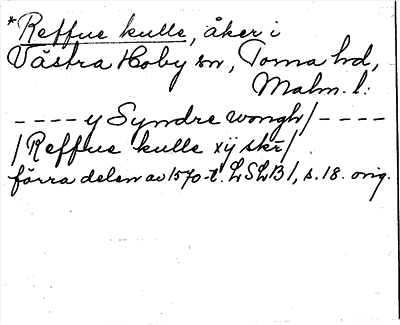 *Reffue kulle, åker i
Västra Hoby sn, Torna hd,
Malm. l:
---- y Syndre wongh/ ----
/Reffue kulle xij skr/
förra delen av 1570-t. LSLB 1, s. 18. orig.